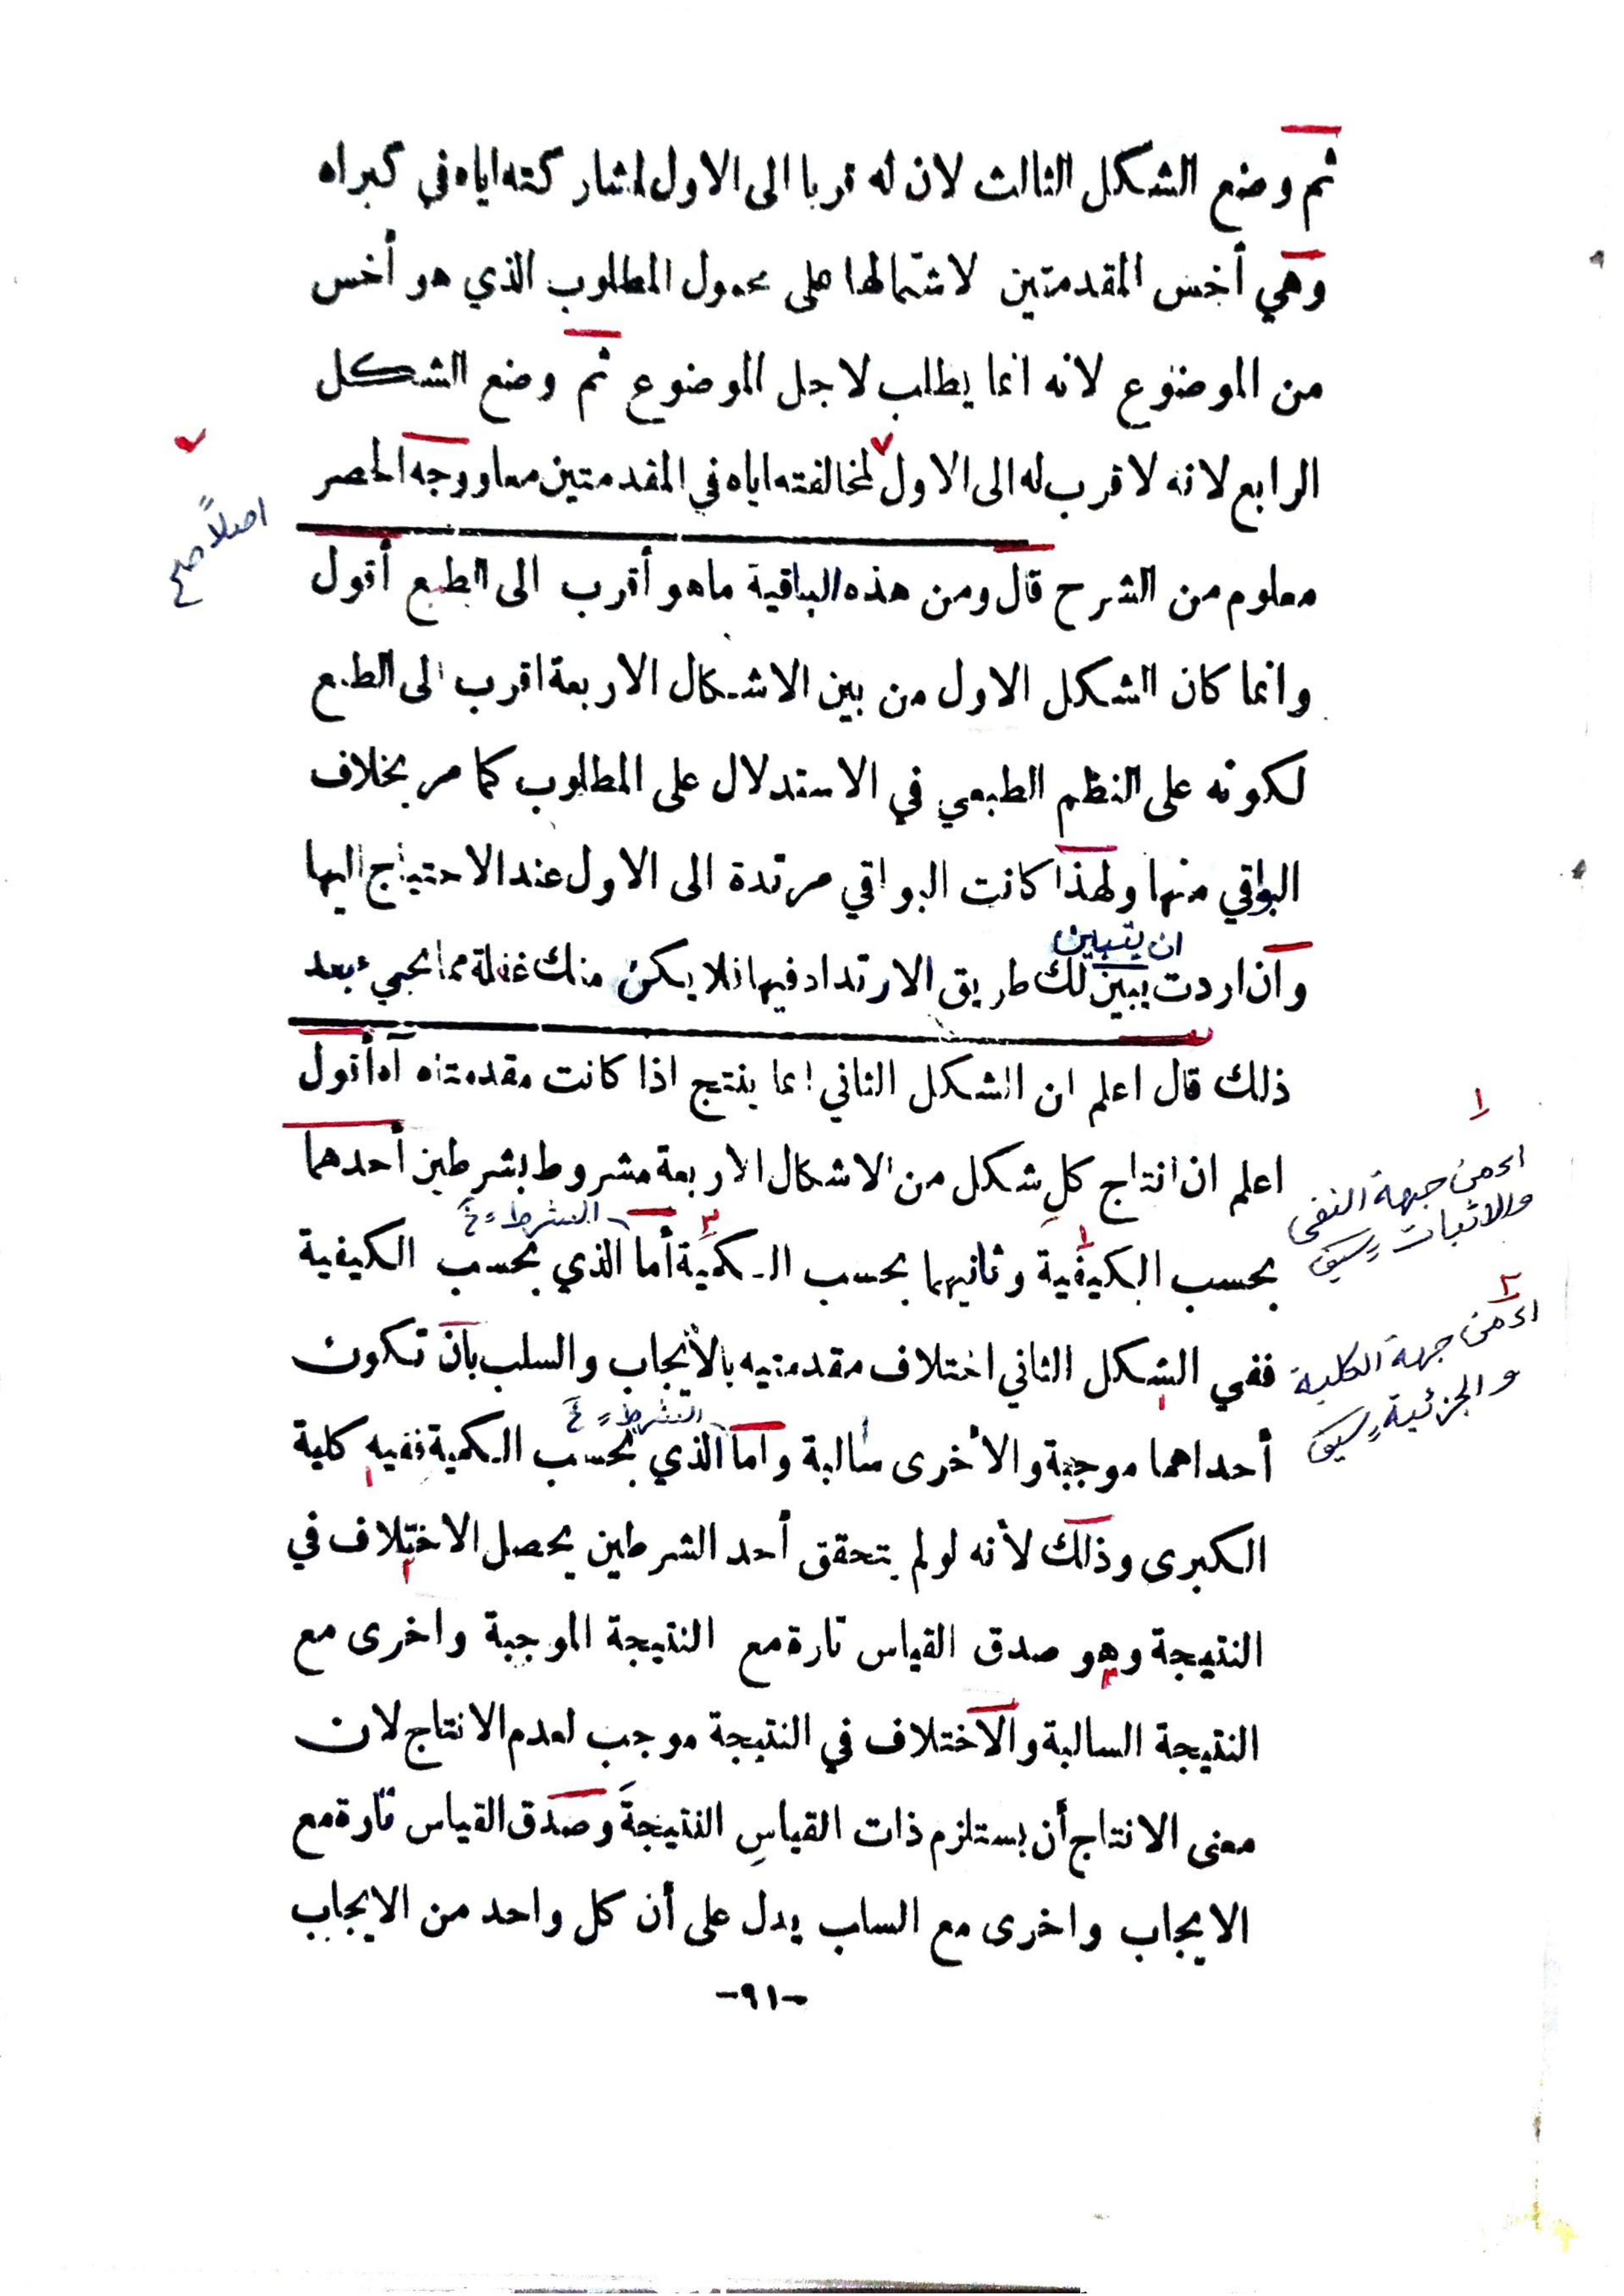 ثم وضع الشكل الثالث لان له قربا الى الاول لمشاركته اياه في كبراه
وهي أخس المقدمتين لاشتمالها على محمول المطلوب الذي هو أخس
من الموضوع لانه انما يطلب لاجل الموضوع ثم وضع الشكل
الرابع لانه لا قرب له الى الاول لمخالفته اياه في المقدمتين معا ووجه الحصر
اصلاً صح
معلوم من الشرح قال ومن هذه الباقية ما هو أقرب الى الطبع أقول
وانما كان الشكل الاول من بين الاشكال الاربعة اقرب الى الطبع
لكونه على النظم الطبعي في الاستدلال على المطلوب كما مر بخلاف
البواقي منها ولهذا كانت البواقي مرتدة الى الاول عند الاحتياج اليها
ان يتبين
وان اردت يبين لك طريق الارتداد فيها فلا يكن منك غفلة مما يجيء بعد
ذلك قال اعلم ان الشكل الثاني انما ينتج اذا كانت مقدمتاه آه أقول
اعلم ان انتاج كلِ شكل من الاشكال الاربعة مشروط بشرطين أحدهما
١
اى من جهة النفى
والاثبات
الشرط
بحسب الكيفية وثانيهما بحسب الكمية أما الذي بحسب الكيفية
٢
اى من جهة الكلية
والجزئية
ففي الشكل الثاني اختلاف مقدمتيه بالأيجاب والسلب بان تكون
الشرط
أحداهما موجبة والأخرى سالبة واما الذي بحسب الكمية ففيه كلية
الكبرى وذلك لأنه لو لم يتحقق أحد الشرطين يحصل الاختلاف في
النتيجة وهو صدق القياس تارة مع النتيجة الموجبة واخرى مع
النتيجة السالبة والاختلاف في النتيجة موجب لعدم الانتاج لان
معنى الانتاج أن يستلزم ذات القياسِ النتيجةَ وصدق القياس تارة مع
الايجاب واخرى مع الساب يدل على أن كل واحد من الايجاب
-٩١-